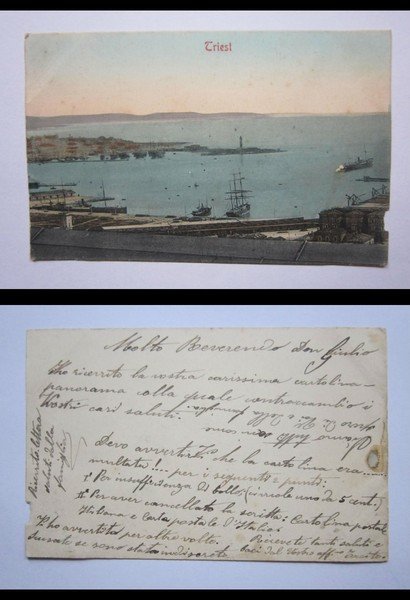 Triest
Molto Reverendo Don Giulio
Ho ricevuto la vostra carissima cartolina-
panorama colla quale contraccambio i
Vostri cari saluti.
Devo avvertirvi che la cartolina era
multata .... per i seguenti 2 punti:
1° Per insufficienza di bollo, (vi vuole uno di 5 cent.)
2° Per aver cancellato la scritta: Cartolina postale
Italiana e Carta postale d'Italia.
V'ho avvertito per altre volte.
Scusate se sono stato indiscreto.
Ricevete tanti saluti e
baci dal Vostro aff.
saluti dalla
famiglia